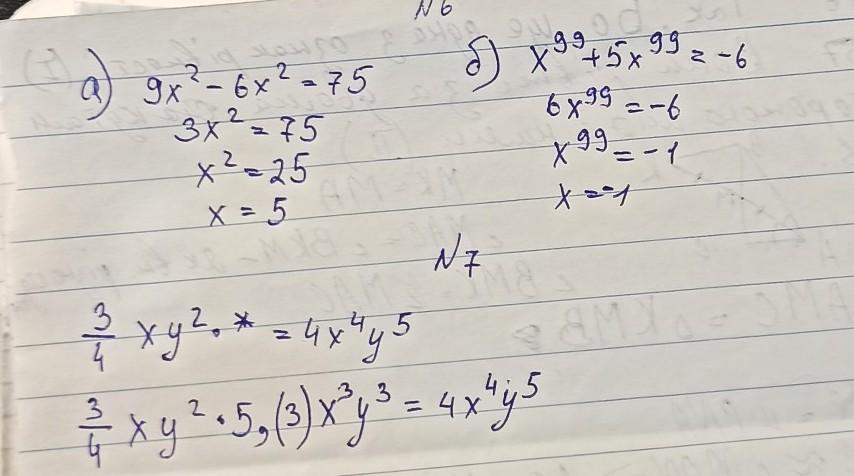 N6
а) 9x² - 6x² = 75
3x² = 75
x² = 25
x = 5
б) x⁹⁹ + 5x⁹⁹ = -6
6x⁹⁹ = -6
x⁹⁹ = -1
x = -1
N7
3/4 xy² · * = 4x⁴y⁵
3/4 xy² · 5,(3)x³y³ = 4x⁴y⁵